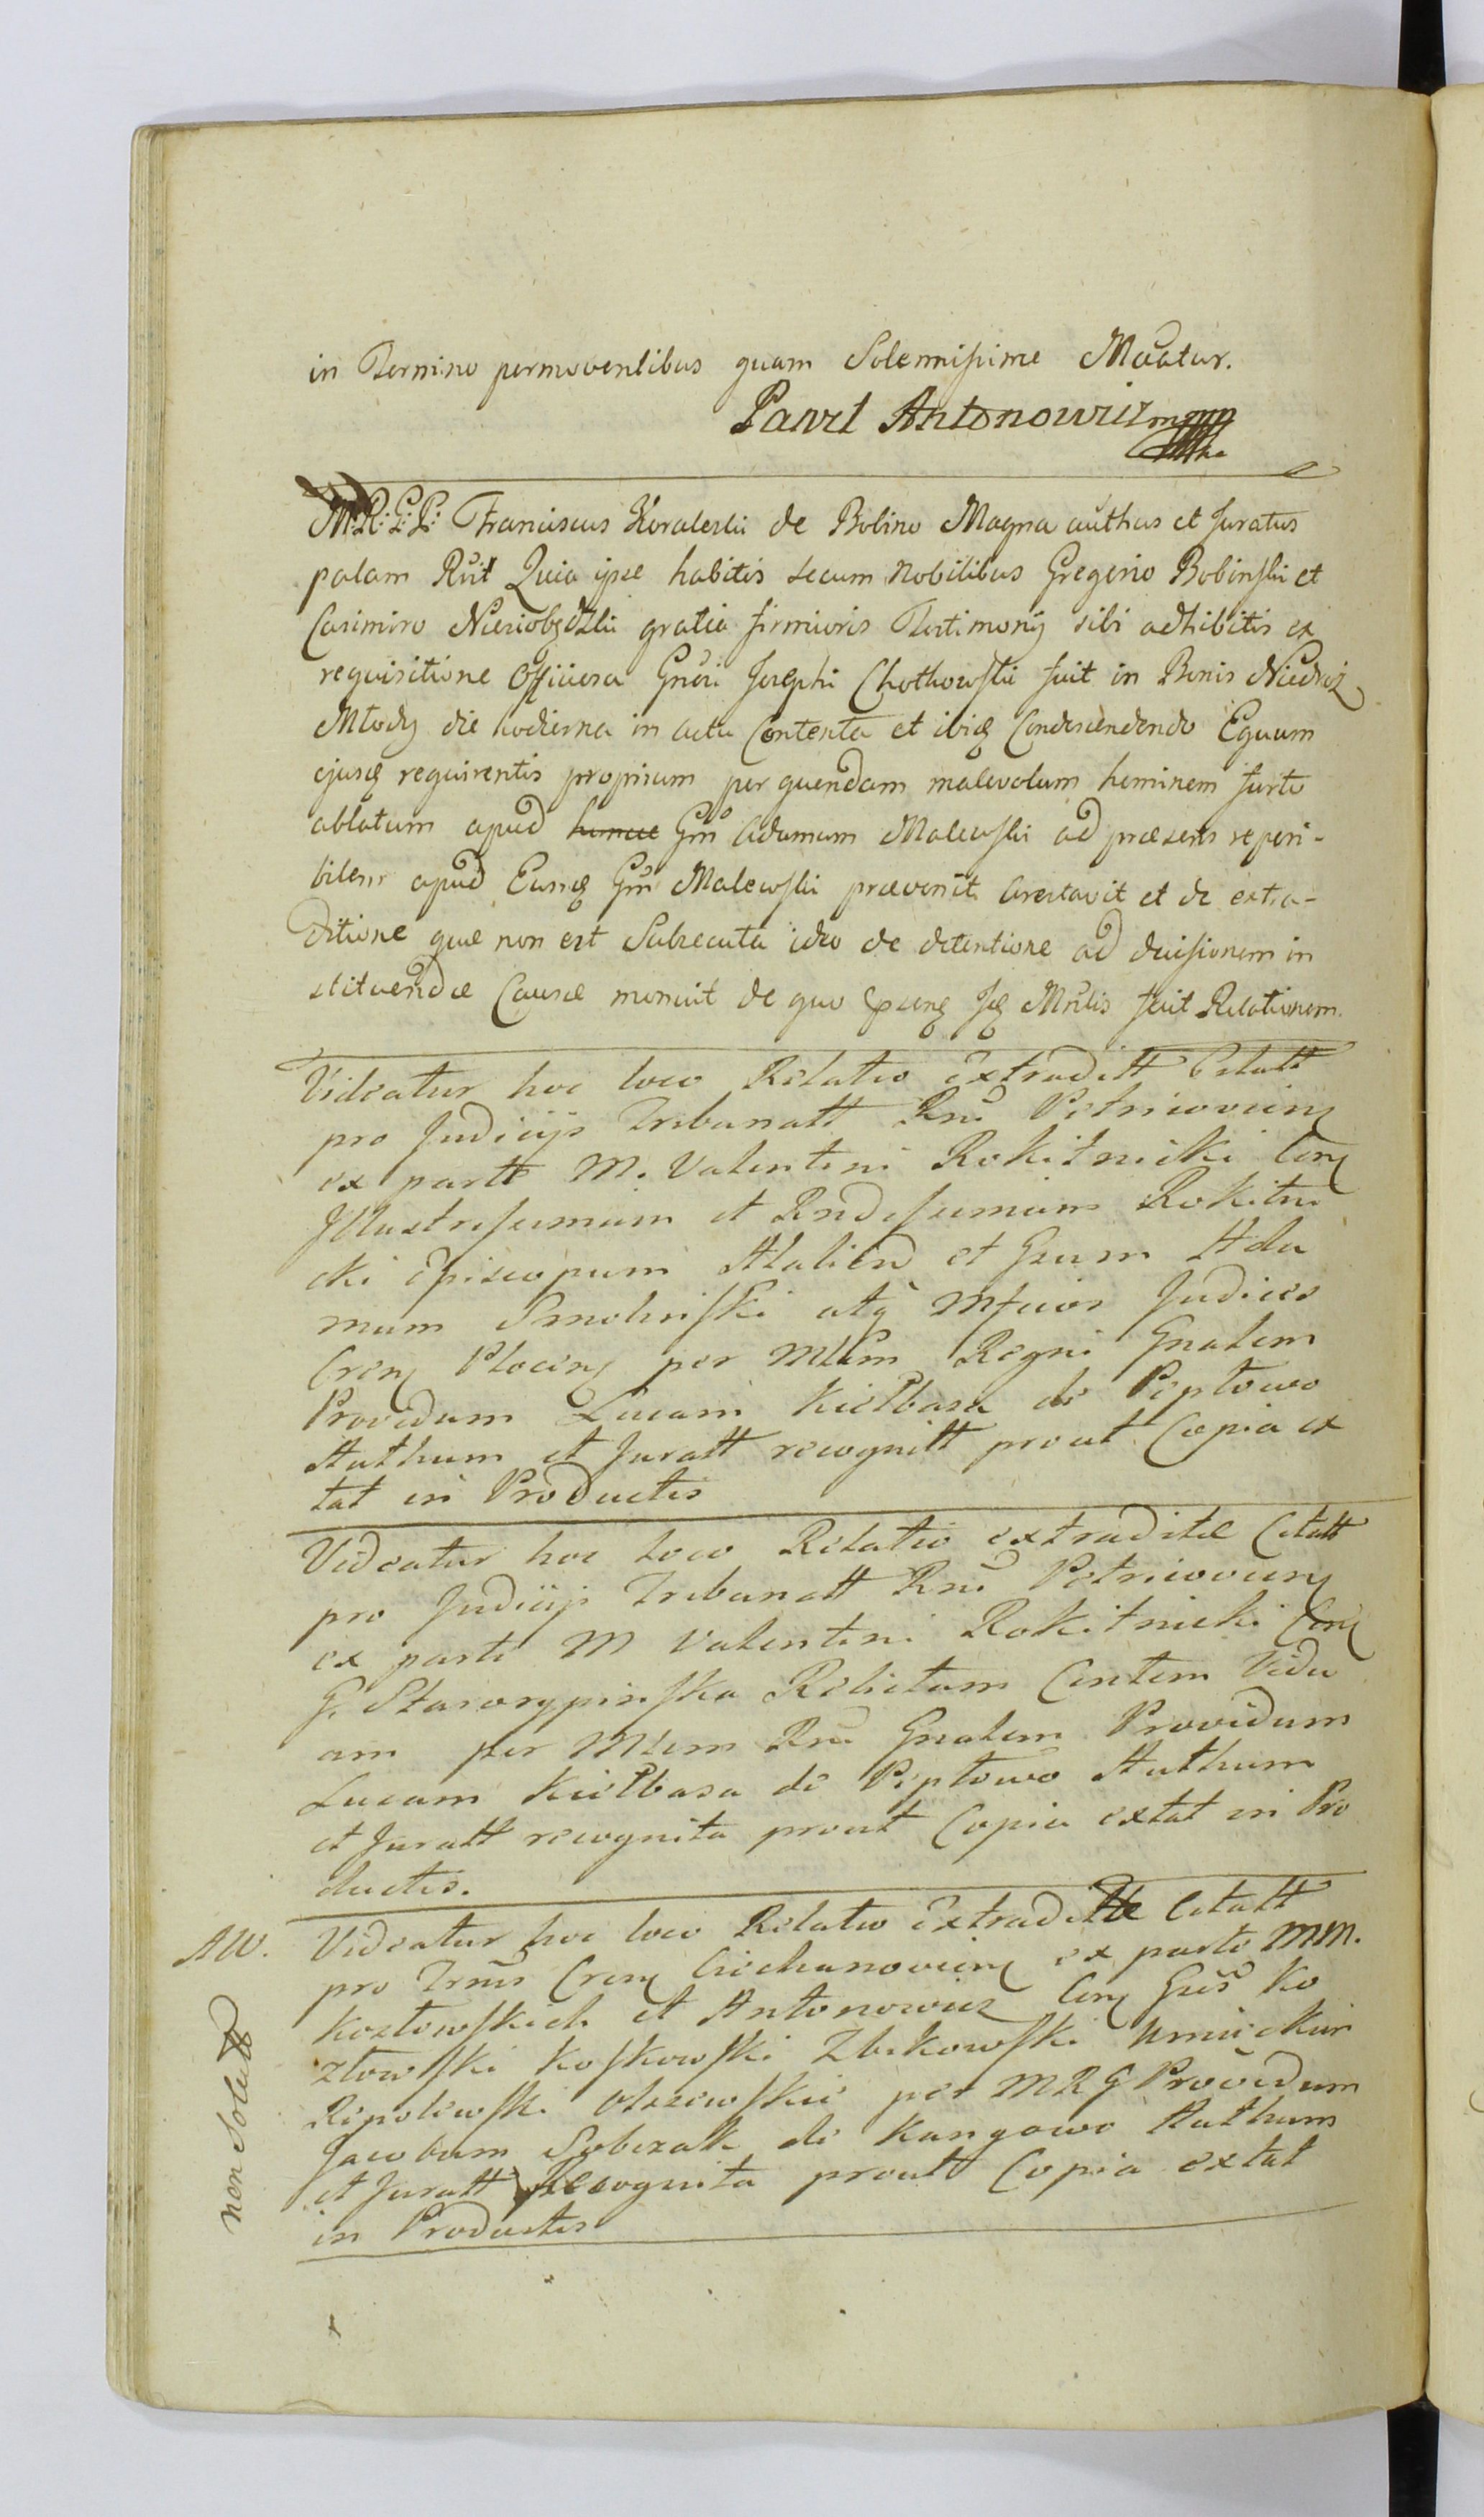 in Termino permoventibus quam Solennissime Mãatur.
Paweł Antonowicz mmp
M: R: G: P: Franciscus Koraleski de Bolino Magna authus et Juratus
palam Rũit Quia ipse habitis secum Nobilibus Gregorio Bobinski et
Casimiro Nieziobędzki gratia firmioris Testimonij sibi adhibitis ex
requisitione Officiosa Gnõsi Josephi Chotkowski fuit in Bonis Niedroż
Młody die hodierna in actu Contenta et ibiq Condescendendo Equum
ejusq requirentis proprium per quendam malevolum hominem furto
ablatum apud hunce Gm̃ Adamum Malewski ad præsens reperi-
bilem apud Eunq Gm̃ Malewski prævenit arestavit et de extra-
ditione quæ non est Subsecuta ideo de detentione ad decisionem in
stituendæ Causæ monuit de quo præns Jq Mnlis fecit Relationem.
Videatur hoc loco Relatio extraditt Citatt
pro Judicijs Tribunatt Rni Petricovien
ex partte M. Valentini Rokitnicki Con
Jllustrissumum et Rndissumum Rokitni
cki Episcopum Atalien et Gsum Ada
mum Smolinski atq̀ Mfcios Judices
Cren Plocens per Mlem Regni Gnalem
Providum Lucam Kiełbasa de Peptowo
Authum et Juratt recognitt prout Copia ex
tat in Productis
Videatur hoc loco Relatio extraditæ Citatt
pro Judicijs Tribunatt Rni Petricovien
ex parte M Valentini Rokitnicki Con
G. Starorypinska Relictam Contem Vidu
am per Mlem Rni Gnalem Providum
Lucam Kiełbasa de Peptowo Authum
et Juratt recognita prout Copia extat in Pro
ductis.
AW. Videatur hoc loco Relatio Extradittæ Citatt
pro Trmis Cren Ciechanovien ex parte MM.
Kozłowskich et Antonowicz Con Gsos Ko
złowski Koskowski Zbikowski
Olszewskie per MRG Providum
Jacobum Sobczak de Kangowo Authum
et Juratt Recognita proutt Copia extat
in Productis
non Solutt